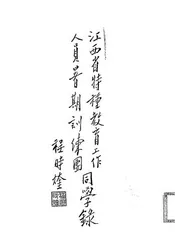 江西省特種教育工作
人員暑期訓練團同學錄
程時煃